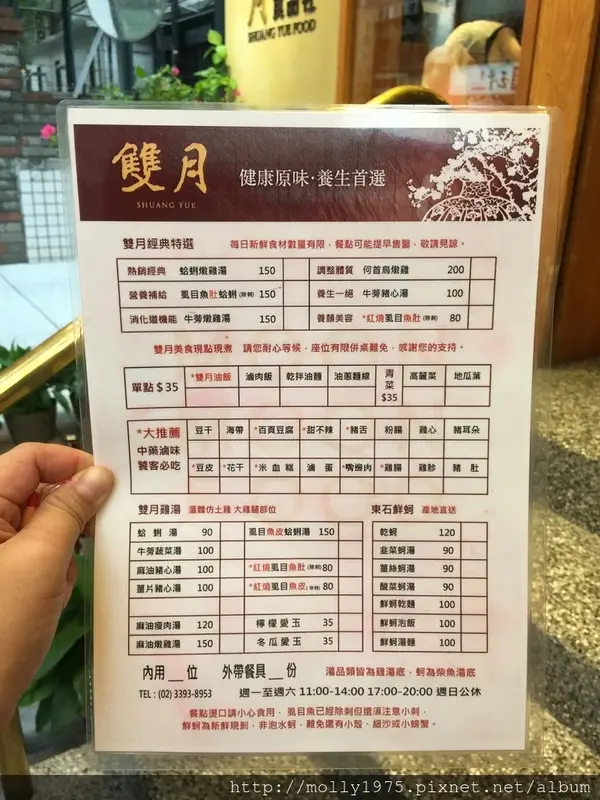 真甽社
SHUANG YUE FOOD
雙月
SHUANG YUE
健康原味·養生首選
雙月經典特選 每日新鮮食材數量有限，餐點可能提早售罄，敬請見諒。
熱銷經典 蛤蜊燉雞湯 150 調整體質 何首烏燉雞 200
營養補給 虱目魚肚蛤蜊(除刺) 150 養生一絕 牛蒡豬心湯 100
消化道機能 牛蒡燉雞湯 150 養顏美容 *紅燒虱目魚肚(除刺) 80
雙月美食現點現煮 請您耐心等候，座位有限併桌難免，感謝您的支持。
單點$35 *雙月油飯 滷肉飯 乾拌油麵 油蔥麵線 青菜$35 高麗菜 地瓜葉
*大推薦 中藥滷味 饕客必吃
豆干 海帶 *百頁豆腐 *甜不辣 *豬舌 粉腸 雞心 豬耳朵
*豆皮 *花干 *米血糕 滷蛋 *嘴邊肉 *雞腸 雞胗 豬肚
雙月雞湯 溫體仿土雞 大雞腿部位 東石鮮蚵 產地直送
蛤蜊湯 90 虱目魚皮蛤蜊湯 150 乾蚵 120
牛蒡蔬菜湯 100 韭菜蚵湯 90
麻油豬心湯 100 *紅燒虱目魚肚(除刺) 80 薑絲蚵湯 90
薑片豬心湯 100 *紅燒虱目魚皮(除刺) 80 酸菜蚵湯 90
鮮蚵乾麵 100
麻油瘦肉湯 120 檸檬愛玉 35 鮮蚵泡飯 100
麻油燉雞湯 150 冬瓜愛玉 35 鮮蚵湯麵 100
內用__位 外帶餐具__份 湯品類皆為雞湯底，蚵為柴魚湯底
TEL : (02) 3393-8953 週一至週六 11:00-14:00 17:00-20:00 週日公休
餐點燙口請小心食用，虱目魚已經除刺但還須注意小刺，
鮮蚵為新鮮現剝，非泡水蚵，難免還有小殼、細沙或小螃蟹。
http://molly1975.pixnet.net/album